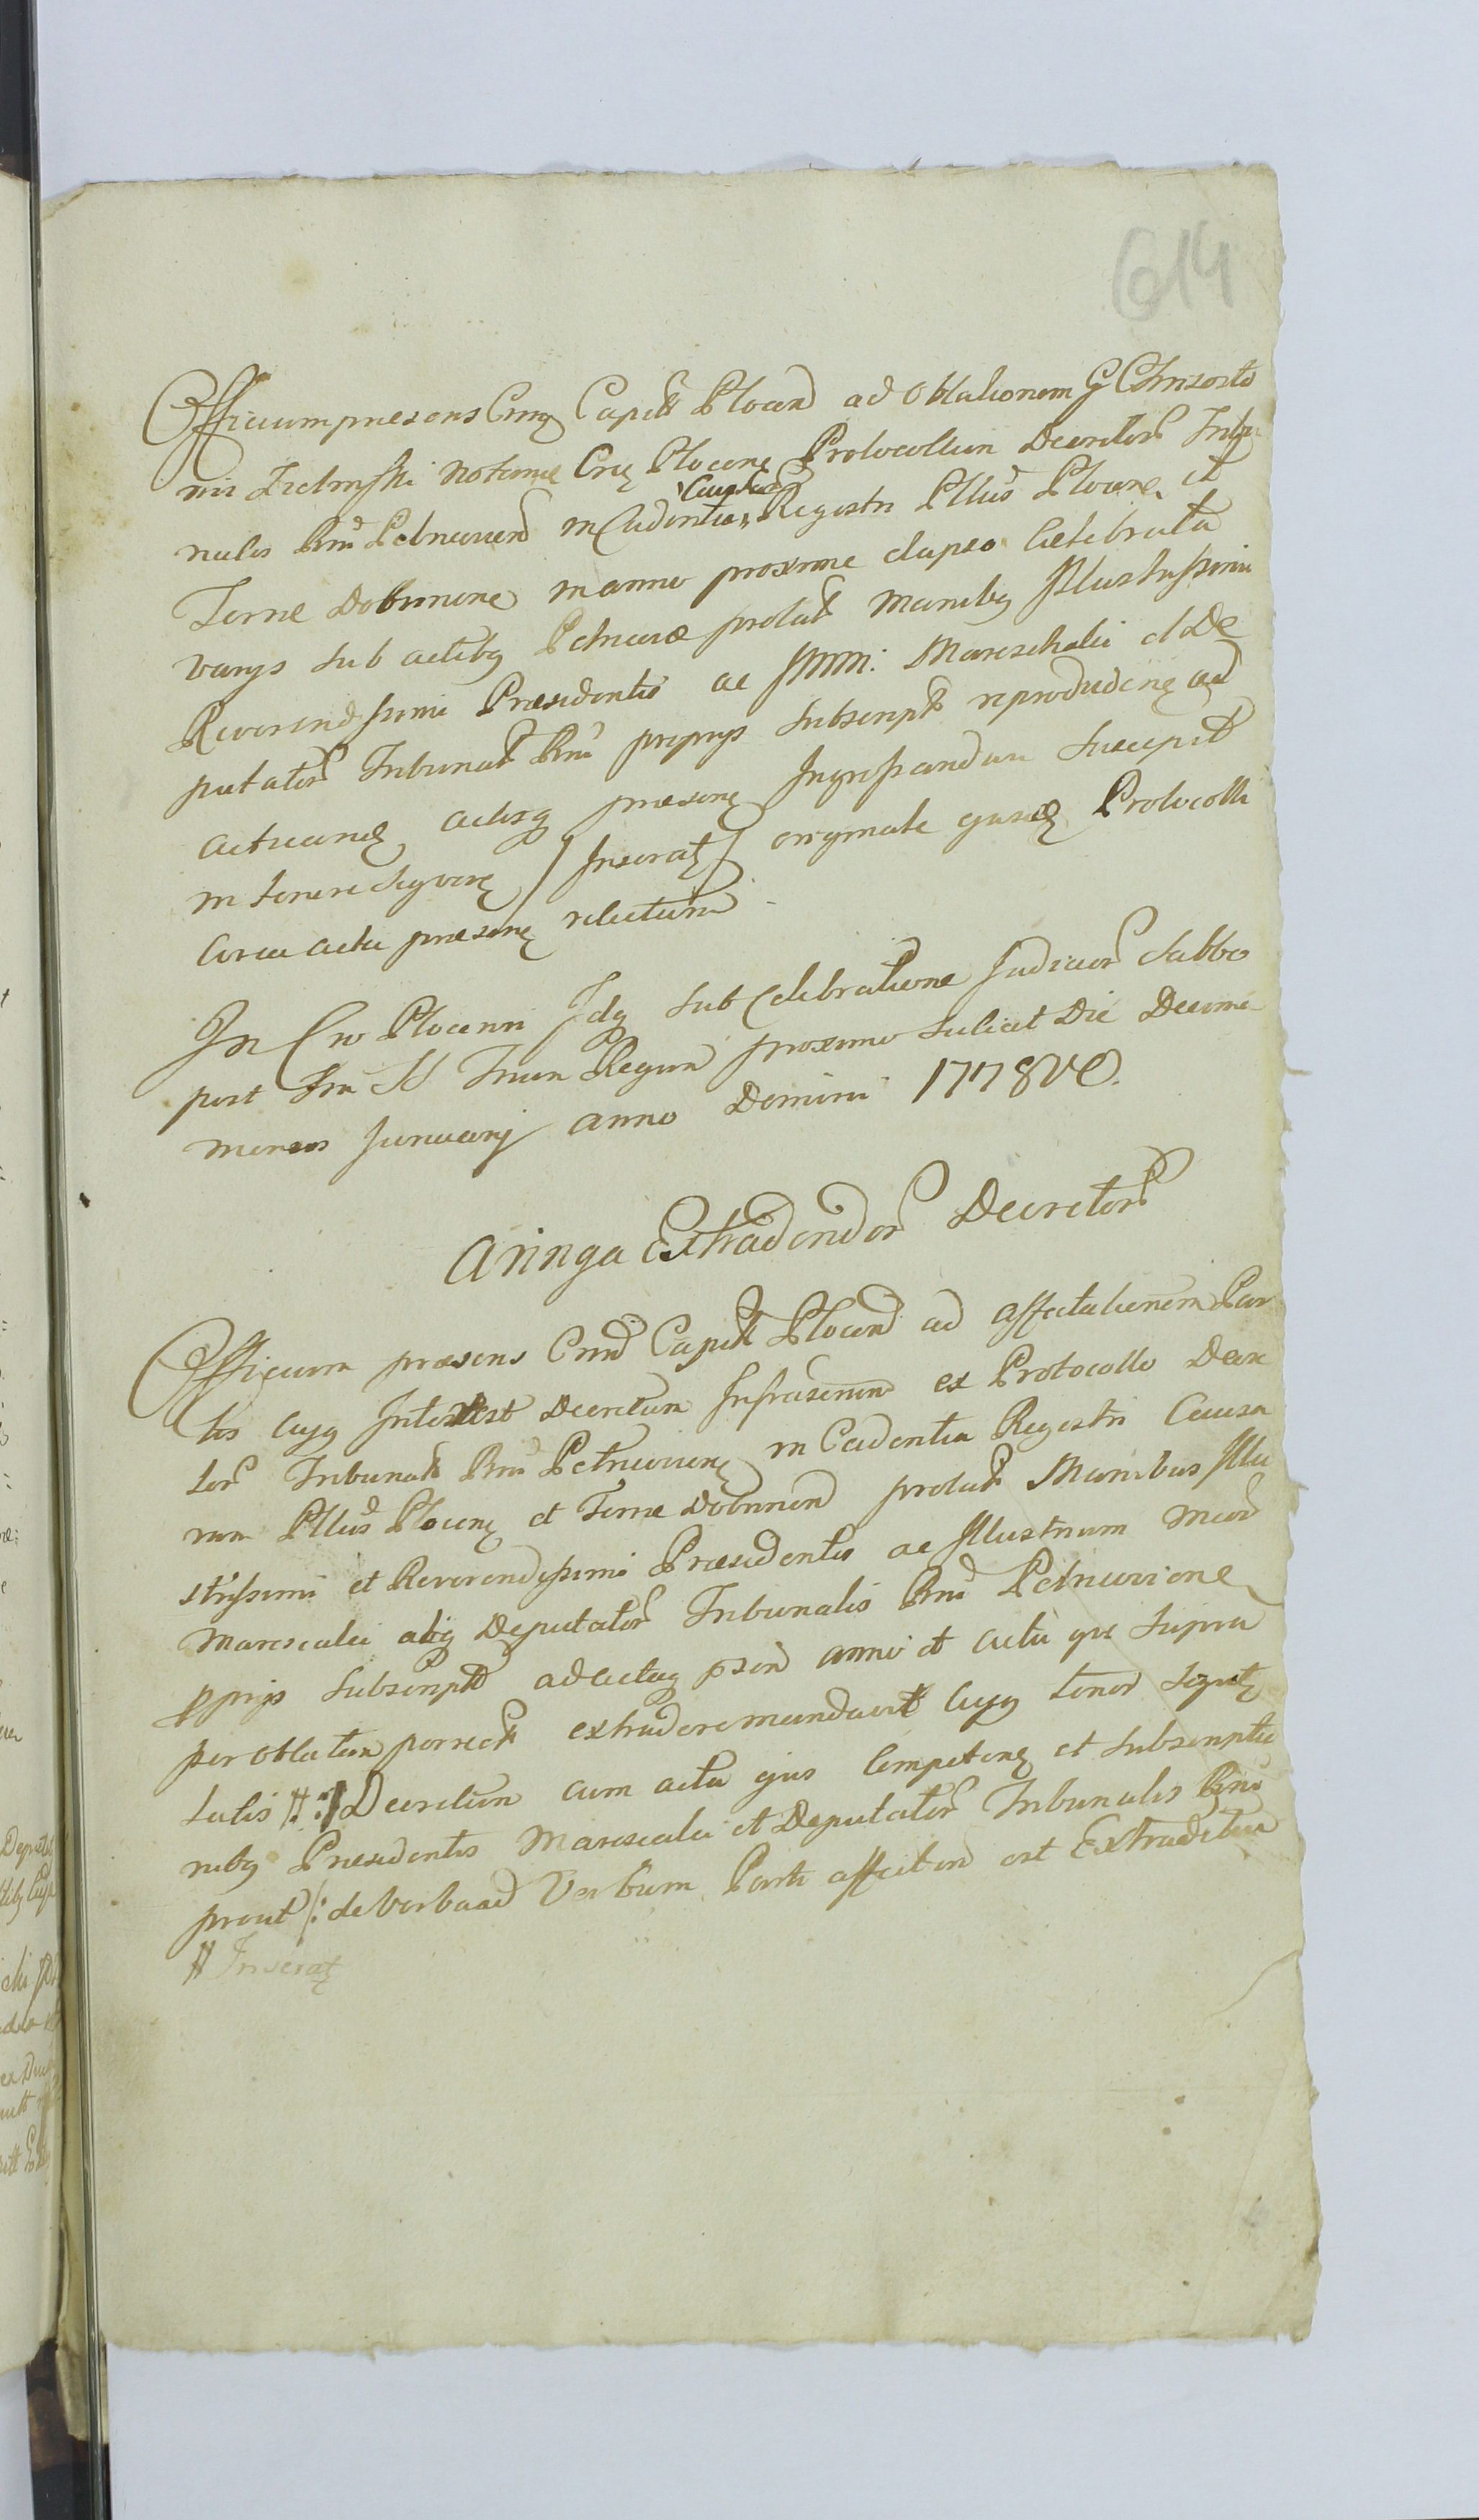 614
Officium praesens Crng Capitl Plocen ad oblationem G Chrisosto
mi Zielinski Notarie Crlis Plocens Protocollum Decretor Tribu
nalis Rni Petricovien in Cadentia Causar Registri Pllus Plocens et
Terrae Dobrinens in anno proxime elapso Celebrata
varys sub actibq Petricoviae prolat Manibq Illustrissimi
Reverendissimi Praesidentis ac Illmi: Mareschalci et De
putator Tribunal Rni proprys Subscript reproducens ad
acticand actisq praesens Ingrossandum Suscepit
in tenore sequens / Inserat / originale ejusd Protocolli
Circa acta praesens relictum -
In Cro Plocenn Idq sub Celebratione Judicior Sabbo
post Fm SS Trium Regum proximo Scilicet Die Decima
mensis January anno Domini 1778vo.
Aringa Extradendor Decretor
Officium praesens Crnd Capitl Plocen ad affectationem Par
tis Cujq Interest Decretum Infrascrim ex Protocollo Decre
tor Tribunal Rni Petricoviens in Cadentia Registri Causa
rum Pllus Plocens et Terrae Dobrinen prolat Manibus Illu
strissimi et Reverendissimi Praesidentis ac Illustrium Mcor
Marescalci aliq Deputator Tribunalis Rni Petricoviens
pprijs Subscript ad actaq psen anno et actu qve supra
per oblatam porrect extradere mandavit Cujq tenor sequt
talis #:/ Decretum cum actu ejus Competens et Subscriptio
nibq Praesidentis Marescalci et Deputator Tribunalis Rni
prout /: de Verbo ad Verbum Parti affectan est Extraditum
# Inserat